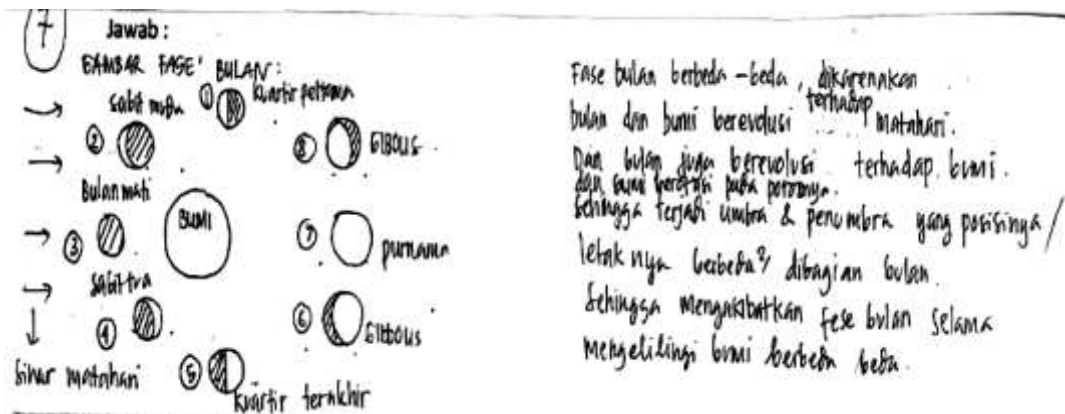 7
Jawab :
GAMBAR FASE² BULAN :
① kuartir pertama
sabit muda
②
⑧ GIBOUS
Bulan mati
③
BUMI
⑦ purnama
sabit tua
④
⑥ GIBBOUS
sinar matahari
⑤
kuartir terakhir
Fase bulan berbeda - beda , dikarenakan
bulan dan bumi berevolusi terhadap matahari.
Dan bulan juga berevolusi terhadap bumi.
dan bumi berotasi pada porosnya.
sehingga terjadi umbra & penumbra yang posisinya /
letak nya berbeda² dibagian bulan.
Sehingga mengakibatkan fese bulan selama
mengelilingi bumi berbeda beda.